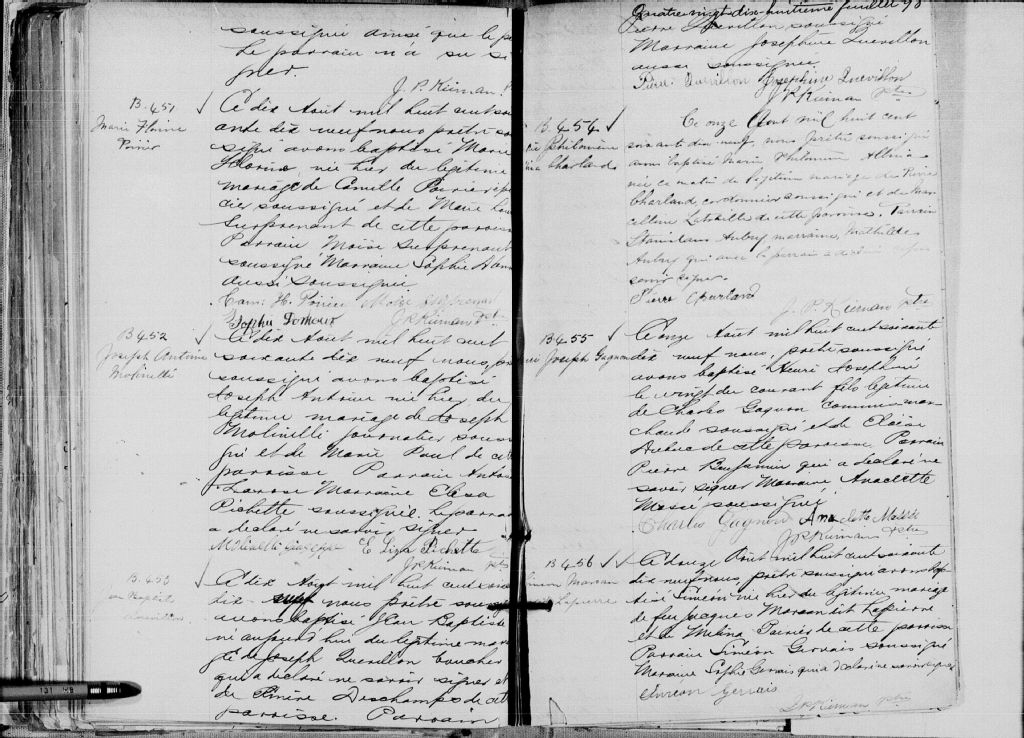 soussigné ainsi que le p
Le parrain n'a su si
gner.
J. P. Kiernan
B 451
Marie Florine
Poirier
Ce dix Août mil huit cent soi
ante dix neuf nous prêtre so
signé avons baptisé Marie
Florine, née hier du légitime
mariage de Camille Poirier épi
cier soussigné et de Marie Lou
Surprenant de cette paroiss
Parrain Moïse Surprenant
soussigné Marraine Sophie
aussi soussignée
Cam. H. Poirier Moïse Surprenant
Sophie
J. P. Kiernan Ptr
B 452
Joseph Antoine
Molinelli
Ce dix Août mil huit cent
soixante dix neuf nous, prê
soussigné avons baptisé
Joseph Antoine né hier du
légitime mariage de Joseph
Molinelli journalier souss
gné et de Marie Paul de cet
paroisse Parrain Antoi
Larose Marraine Elisa
Pichette soussignée. Le parra
a déclaré ne savoir signer
Molinelli Giuseppe Eliza Pichette
J. P. Kiernan Ptr
B 453
Jean Baptiste
Quevillon
Ce dix Août mil huit cent soix
dix neuf nous prêtre soussig
avons baptisé Jean Baptiste
né aujourd'hui du légitime mar
ge de Joseph Quevillon boucher
qui a déclaré ne savoir signer et
de Deschamps de cet
paroisse. Parrain
Quatre-vingt dix-huitième feuillet 98
Pierre Quevillon soussigné
Marraine Josephine Quevillon
aussi soussignée
Quevillon Josephine Quevillon
J. P. Kiernan Ptre
B 454
ie Philomène
Charland
Ce onze Août mil huit cent
soixante dix neuf, nous, prêtre soussigné
avons baptisé Marie Philomène Albina
née ce matin du légitime mariage de Pierre
Charland, cordonnier soussigné et de Mar
celline Latreille de cette paroisse. Parrain
Stanislaus Aubry marraine, Mathilde
Aubry qui avec le parrain a déclaré
savoir signer
Pierre Charland
J. P. Kiernan Ptre
B 455
ri Joseph Gagnon
Ce onze Août mil huit cent soixante
dix neuf nous, prêtre soussigné
avons baptisé Henri Joseph né
le vingt du courant fils légitime
de Charles Gagnon commis mar
chand soussigné et de Eloïse
de cette paroisse. Parrain
Pierre Benjamin qui a déclaré ne
savoir signer Marraine Anaclette
Massé soussignée
Charles Gagnon Anaclette Massé
J. P. Kiernan Ptre
B 456
Simeon Morsan
Lapierre
Ce douze Août mil huit cent soixante
dix neuf nous, prêtre soussigné avons bap
tisé Siméon né hier du légitime mariage
de feu Jacques Morsan dit Lapierre
et de Melina de cette paroisse
Parrain Siméon Gervais soussigné
Marraine Sophie Gervais qui a déclaré ne savoir signer
Simeon Gervais
J. P. Kiernan Ptre